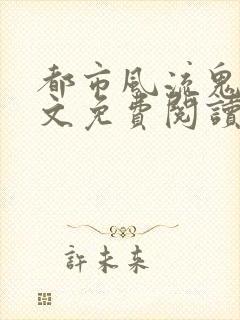 都市風流鬼
文免費閱讀
許未來